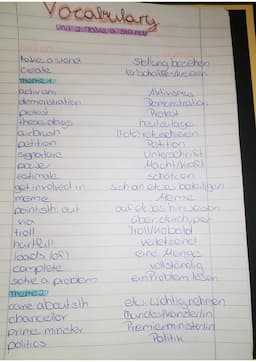 Vocabulary
Unit 2: Take a stand!
take a stand Stellung beziehen
create
Theme 1:
activism Aktivismus
demonstration Demonstration
protest Protest
these days heutzutage
airbrush (Foto) retuschieren
petition Petition
signature Unterschrift
power Macht/Kraft
estimate schätzen
get involved in sich an etw. beteiligen
meme Meme
point sth. out auf etw. hinweisen
via über, durch, per
troll Troll/Kobold
hurtful verletzend
loads (of) eine Menge
complete vollständig
solve a problem ein Problem lösen
Theme 2:
care about sth etw. wichtig nehmen
chancellor Bundeskanzler/in
prime minister Premierminister/in
politics Politik